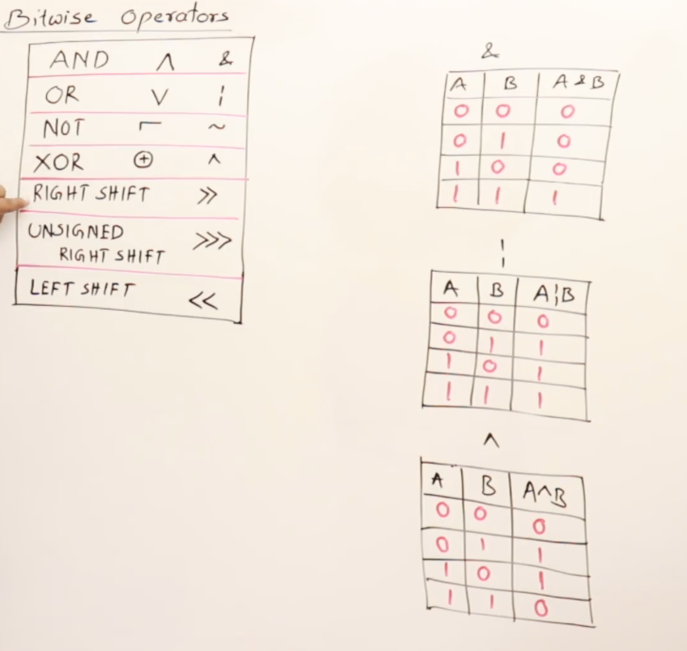 Bitwise Operators
AND ∧ &
OR ∨ ¦
NOT ⌐ ~
XOR ⊕ ^
RIGHT SHIFT >>
UNSIGNED
RIGHT SHIFT >>>
LEFT SHIFT <<
&
A B A&B
0 0 0
0 1 0
1 0 0
1 1 1
¦
A B A¦B
0 0 0
0 1 1
1 0 1
1 1 1
^
A B A^B
0 0 0
0 1 1
1 0 1
1 1 0